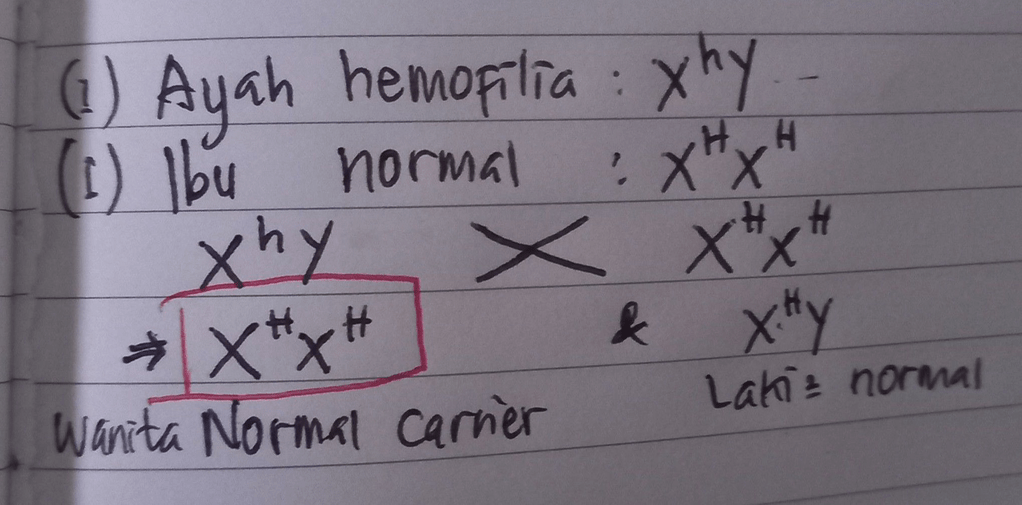 (1) Ayah hemofilia : XʰY --
(1) Ibu normal : XᴴXᴴ
XʰY X XᴴXᴴ
⇒ XᴴXᴴ & XᴴY
Wanita Normal Carrier Laki² normal